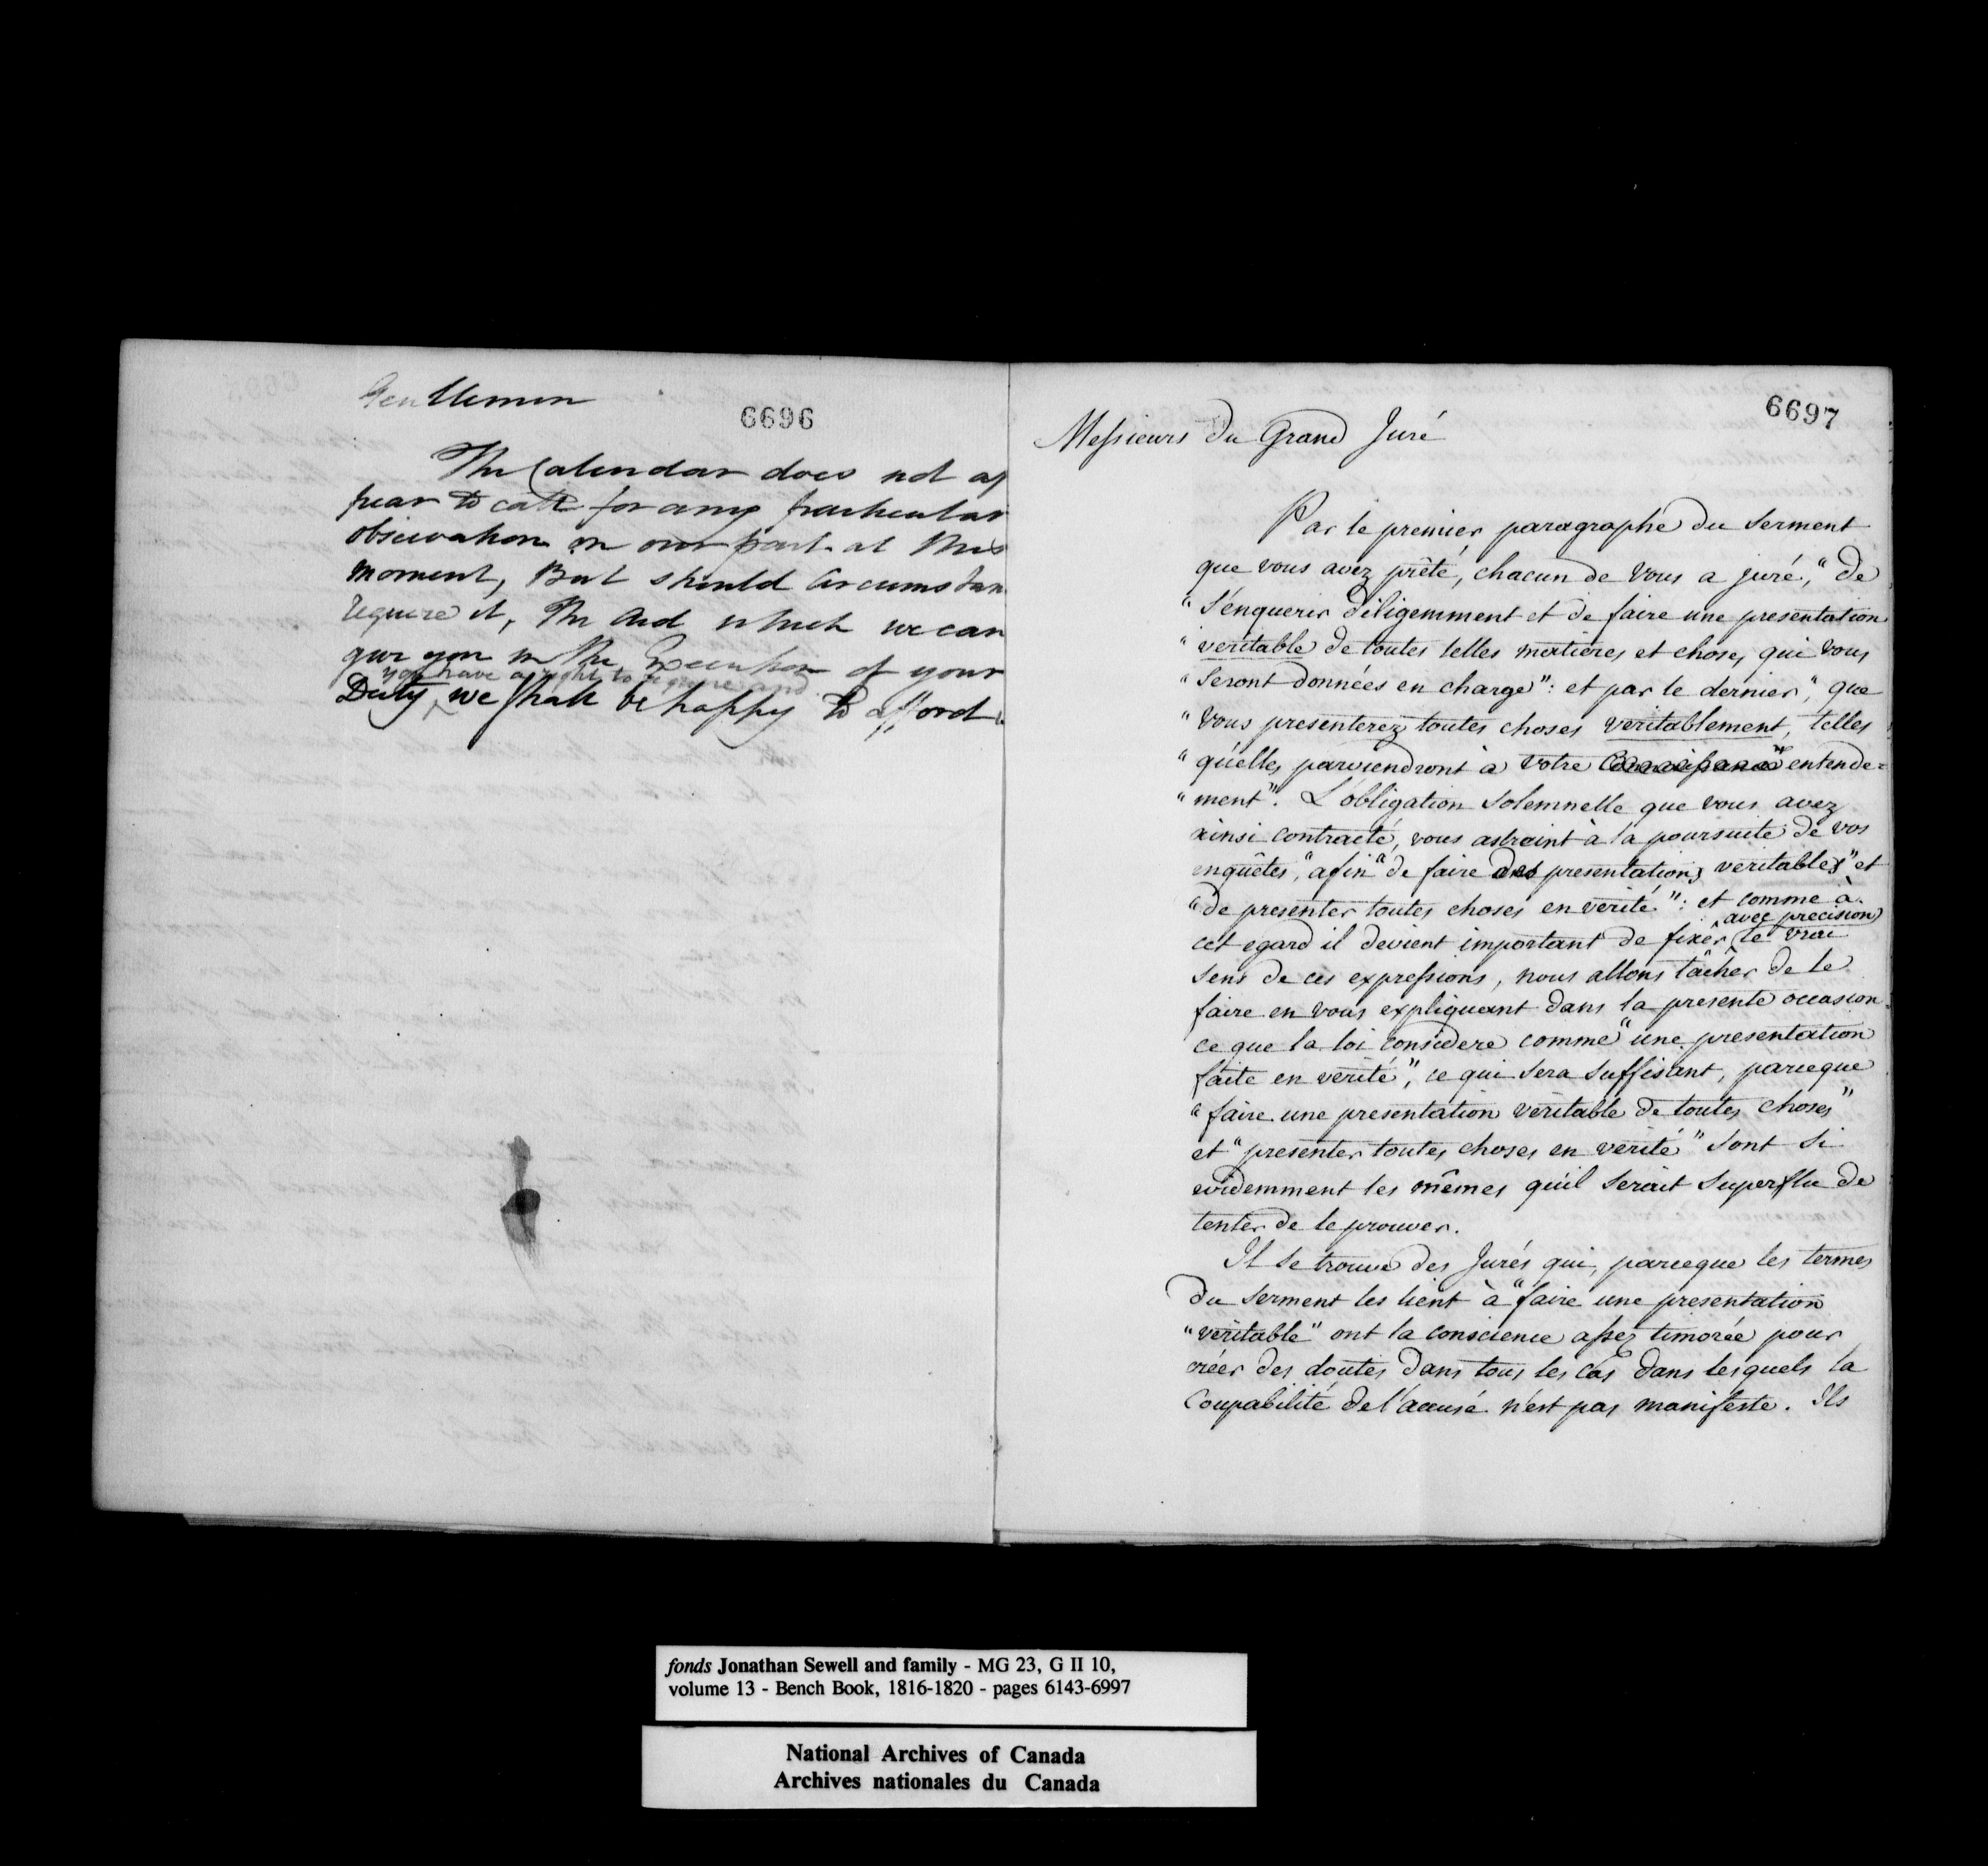 Gentlemen
6696
The Calendar does not ap
pear to call for any particular
observation on our part at this
moment, But should Circumstan
require it, The Aid which we can
give you in the Execution of your
you have a right to require and
Duty, we shall be happy to afford.
6697
Messieurs du Grand Juré
Par le premier paragraphe du Serment
que vous avez prêté, chacun de Vous a juré, "de
"S'enquerir diligemment et de faire une presentation
"veritable de toutes telles matieres et choses qui vous
"Seront données en charge": et par le dernier, "que
"Vous presenterez toutes choses veritablement, telles
"qu'elles parviendront à votre entende=
"ment". L'obligation Solemnelle que vous avez
ainsi contracté, vous astraint à la poursuite de vos
enquêtes, "afin" de faire des presentations veritables" et
"de presenter toutes choses en verité": et comme à
avec precision
cet egard il devient important de fixêr le vrai
sens de ces expressions, nous allons tâcher de le
faire en vous expliquant dans la presente occasion
ce que la loi considere comme "une presentation
faite en verité", ce qui sera suffisant, parceque
"faire une presentation veritable de toutes choses"
et "presenter toutes choses en verité" sont si
evidemment les mêmes qu'il serait superflu de
tenter de le prouver.
Il se trouve des Jurés qui, parceque les termes
du Serment les lient à "faire une presentation
"veritable" ont la conscience assez timorée pour
créer des doutes dans tous les Cas dans lesquels la
Coupabilité de l'accusé n'est pas manifeste. Ils
fonds Jonathan Sewell and family - MG 23, G II 10,
volume 13 - Bench Book, 1816-1820 - pages 6143-6997
National Archives of Canada
Archives nationales du Canada